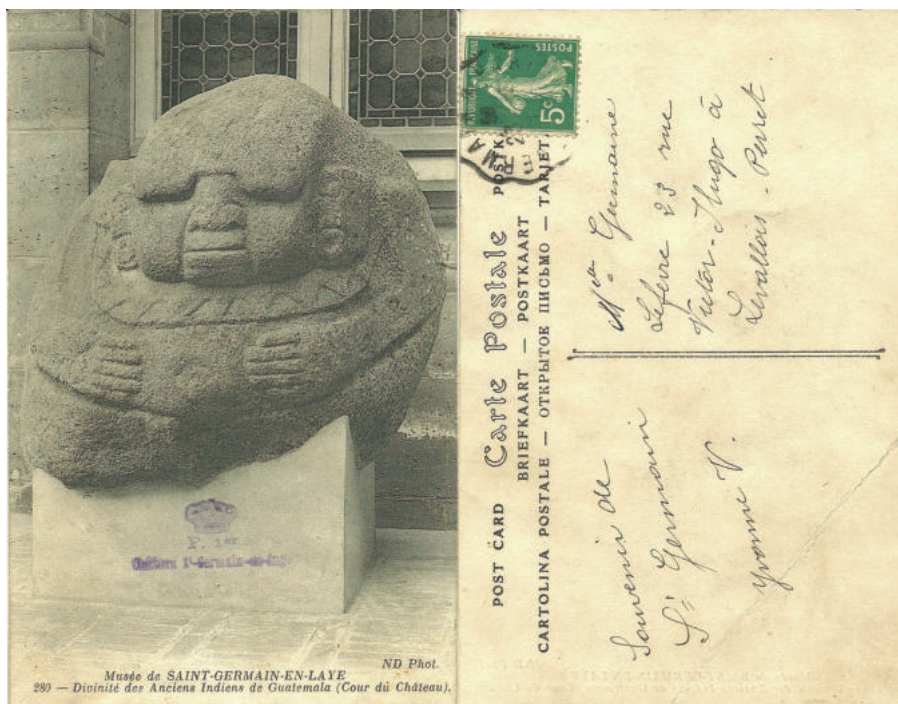 F. 1er
Château St-Germain-en-Laye
ND Phot.
Musée de SAINT-GERMAIN-EN-LAYE
280 — Divinité des Anciens Indiens de Guatemala (Cour du Château).
POSTES
5c
POST CARD Carte Postale POSTKA
BRIEFKAART — POSTKAART
CARTOLINA POSTALE — ОТКРЫТОЕ ПИСЬМО — TARJET
Melle Germaine
Lefevre 23 rue
Victor-Hugo à
Levallois-Perret
Souvenir de
St Germain
Yvonne V.